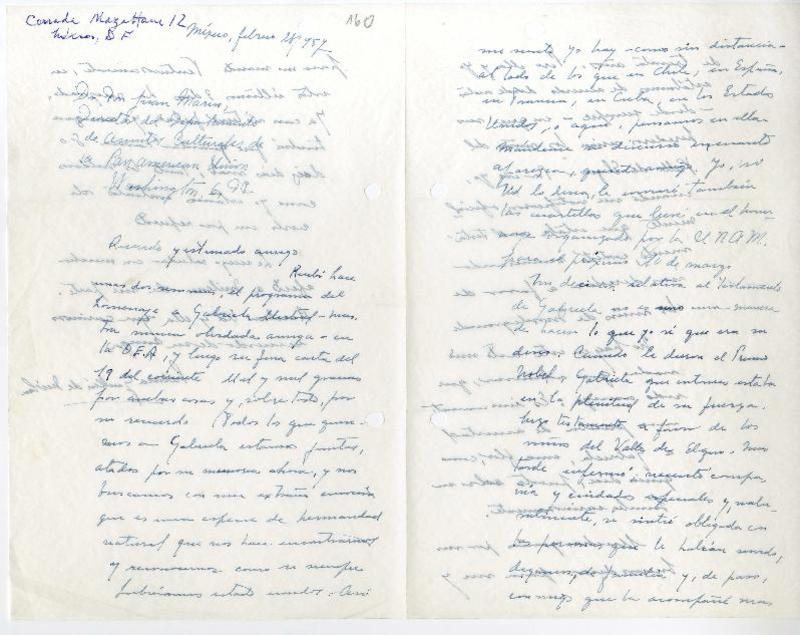 Cerrada Mazatlan 12
México, D F.
160
México, febrero 28 1957
Sr. Dr. Juan Marín
Director del Departamento
de Asuntos Culturales de
la Pan American Union
Washington 6, D.C.
Recordado y estimado amigo
Recibí hace
unas dos semanas, el programa del
homenaje a Gabriela Mistral - nues
tra nunca olvidada amiga - en
la O.E.A., y luego su fina carta del
19 del corriente. Mil y mil gracias
por ambas cosas y, sobre todo, por
su recuerdo. Todos los que quere-
mos a Gabriela estamos juntos,
atados por su memoria ahora, y nos
buscamos con una extraña emoción
que es una especie de hermandad
natural que nos hace encontrarnos
y reconocernos como si siempre
hubiéramos estado unidos. Así
me siento yo hoy - como sin distancia -
al lado de los que en Chile, en España,
en Francia, en Cuba, en los Estados
Unidos, o aquí, pensamos en ella.
discurso
aparezca, Yo, no
Ud lo dude, le enviaré también
las cuartillas que leeré en el home
naje organizado por la U.N.A.M.
para el próximo de marzo
relativa al testamento
de Gabriela no es una manera
de hacer lo que yo sé que era su
deseo. Cuando le dieron el Premio
Nobel, Gabriela que entonces estaba
en la plenitud de su fuerza
hizo testamento a favor de los
niños del Valle de Elqui. Mas
tarde enfermó, necesitó compa
ñía y cuidados especiales y, natu-
ralmente, se sintió obligada con
las personas que le habían servido,
digamos, de familia y, de paso,
conmigo que la acompañé mas